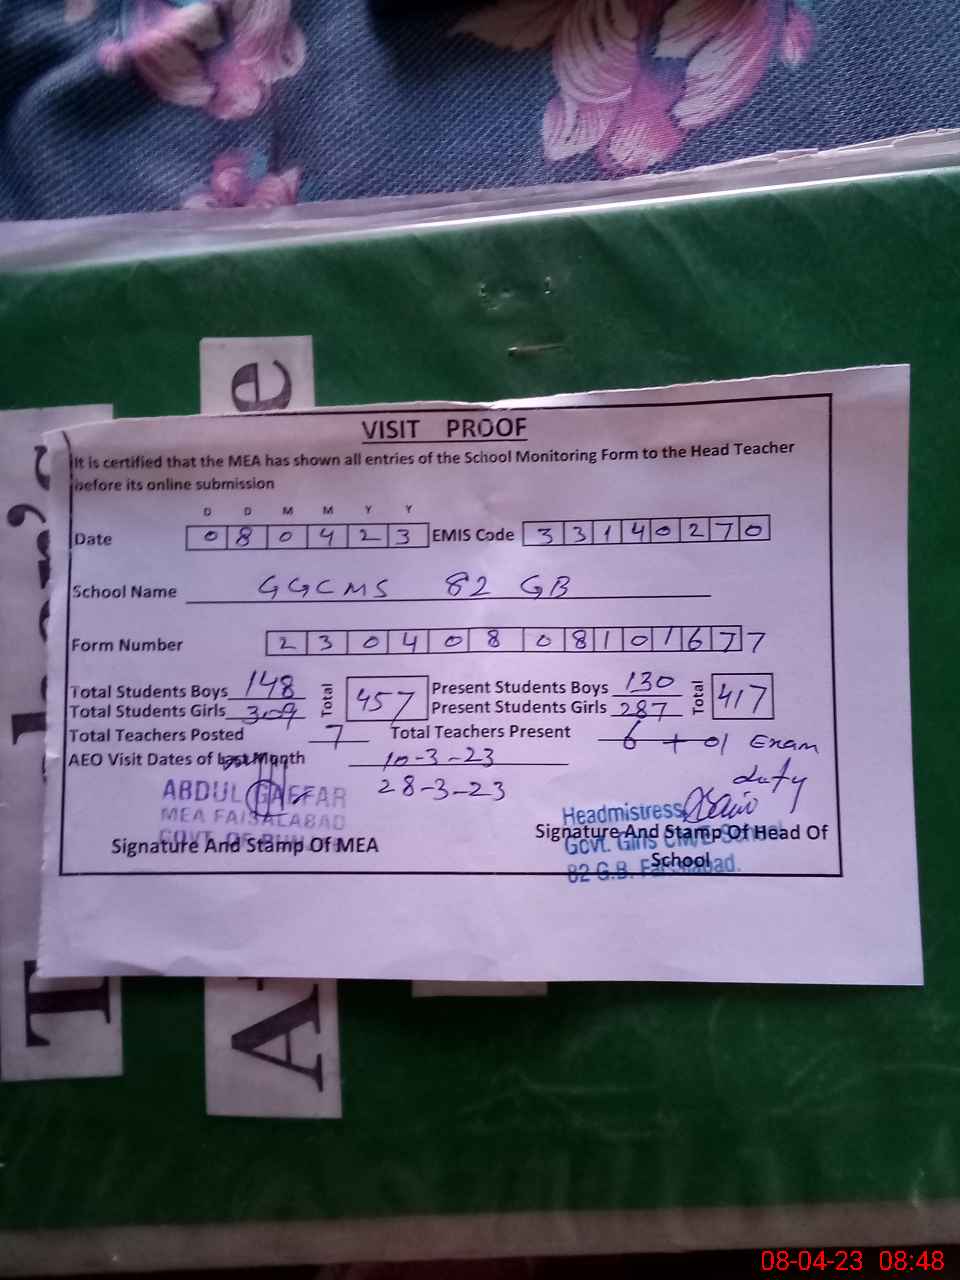 e
VISIT PROOF
It is certified that the MEA has shown all entries of the School Monitoring Form to the Head Teacher
before its online submission
D D M M Y Y
Date 0 8 0 4 2 3 EMIS Code 3 3 1 4 0 2 7 0
School Name GGCMS 82 GB
Form Number 2 3 0 4 0 8 0 8 1 0 1 6 7 7
Total Students Boys 148 Total 457 Present Students Boys 130 Total 417
Total Students Girls 309 Present Students Girls 287
Total Teachers Posted 7 Total Teachers Present 6 + 01 Exam duty
AEO Visit Dates of Last Month 10-3-23
28-3-23
ABDUL GAFFAR
MEA FAISALABAD
GOVT. OF
Signature And Stamp Of MEA
Headmistress
Govt. Girls School
82 G.B. Faisalabad.
Signature And Stamp Of Head Of
School
T
A
08-04-23 08:48